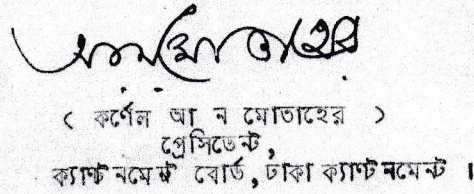 আ ন মোতাহের
( কর্ণেল আ ন মোতাহের )
প্রেসিডেন্ট,
ক্যান্টনমেন্ট বোর্ড, ঢাকা ক্যান্টনমেন্ট ।